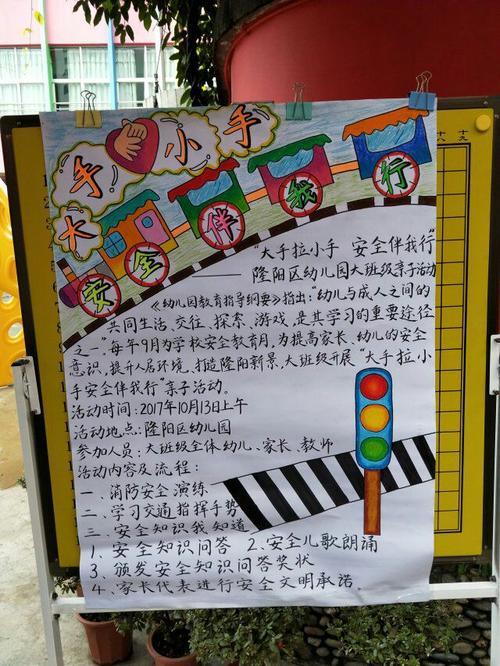 大手 小手
安全伴我行
"大手拉小手 安全伴我行"
——隆阳区幼儿园大班级亲子活动
《幼儿园教育指导纲要》指出:"幼儿与成人之间的
共同生活、交往、探索、游戏,是其学习的重要途径
之一"。每年9月为学校安全教育月,为提高家长、幼儿的安全
意识,提升人居环境、打造隆阳新景,大班级开展"大手拉小
手安全伴我行"亲子活动。
活动时间:2017年10月13日上午
活动地点:隆阳区幼儿园
参加人员:大班级全体幼儿、家长、教师
活动内容及流程:
一、消防安全演练
二、学习交通指挥手势
三、安全知识我知道
1、安全知识问答 2、安全儿歌朗诵
3、颁发安全知识问答奖状
4、家长代表进行安全文明承诺